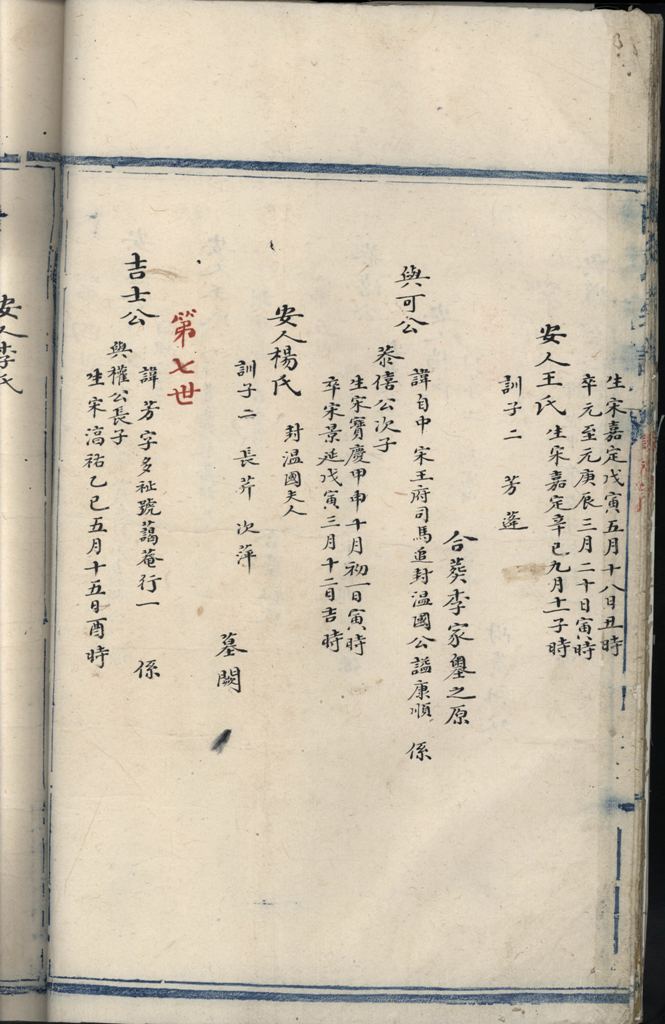 生宋嘉定戊寅五月十八日丑時
卒元至元庚辰三月二十日寅時
安人王氏 生宋嘉定辛巳九月十一子時
訓子二 芳 蓬
合葬李家壟之原
與可公 諱自中 宋王府司馬追封溫國公謚康順 係
恭僖公次子
生宋寶慶甲申十月初一日寅時
卒宋景延戊寅三月十二日吉時
安人楊氏 封溫國夫人
訓子二 長芥 次萍
墓闕
第七世
吉士公 諱芳字多祉號藹菴行一 係
與權公長子
生宋淳祐乙巳五月十五日酉時
安人李氏